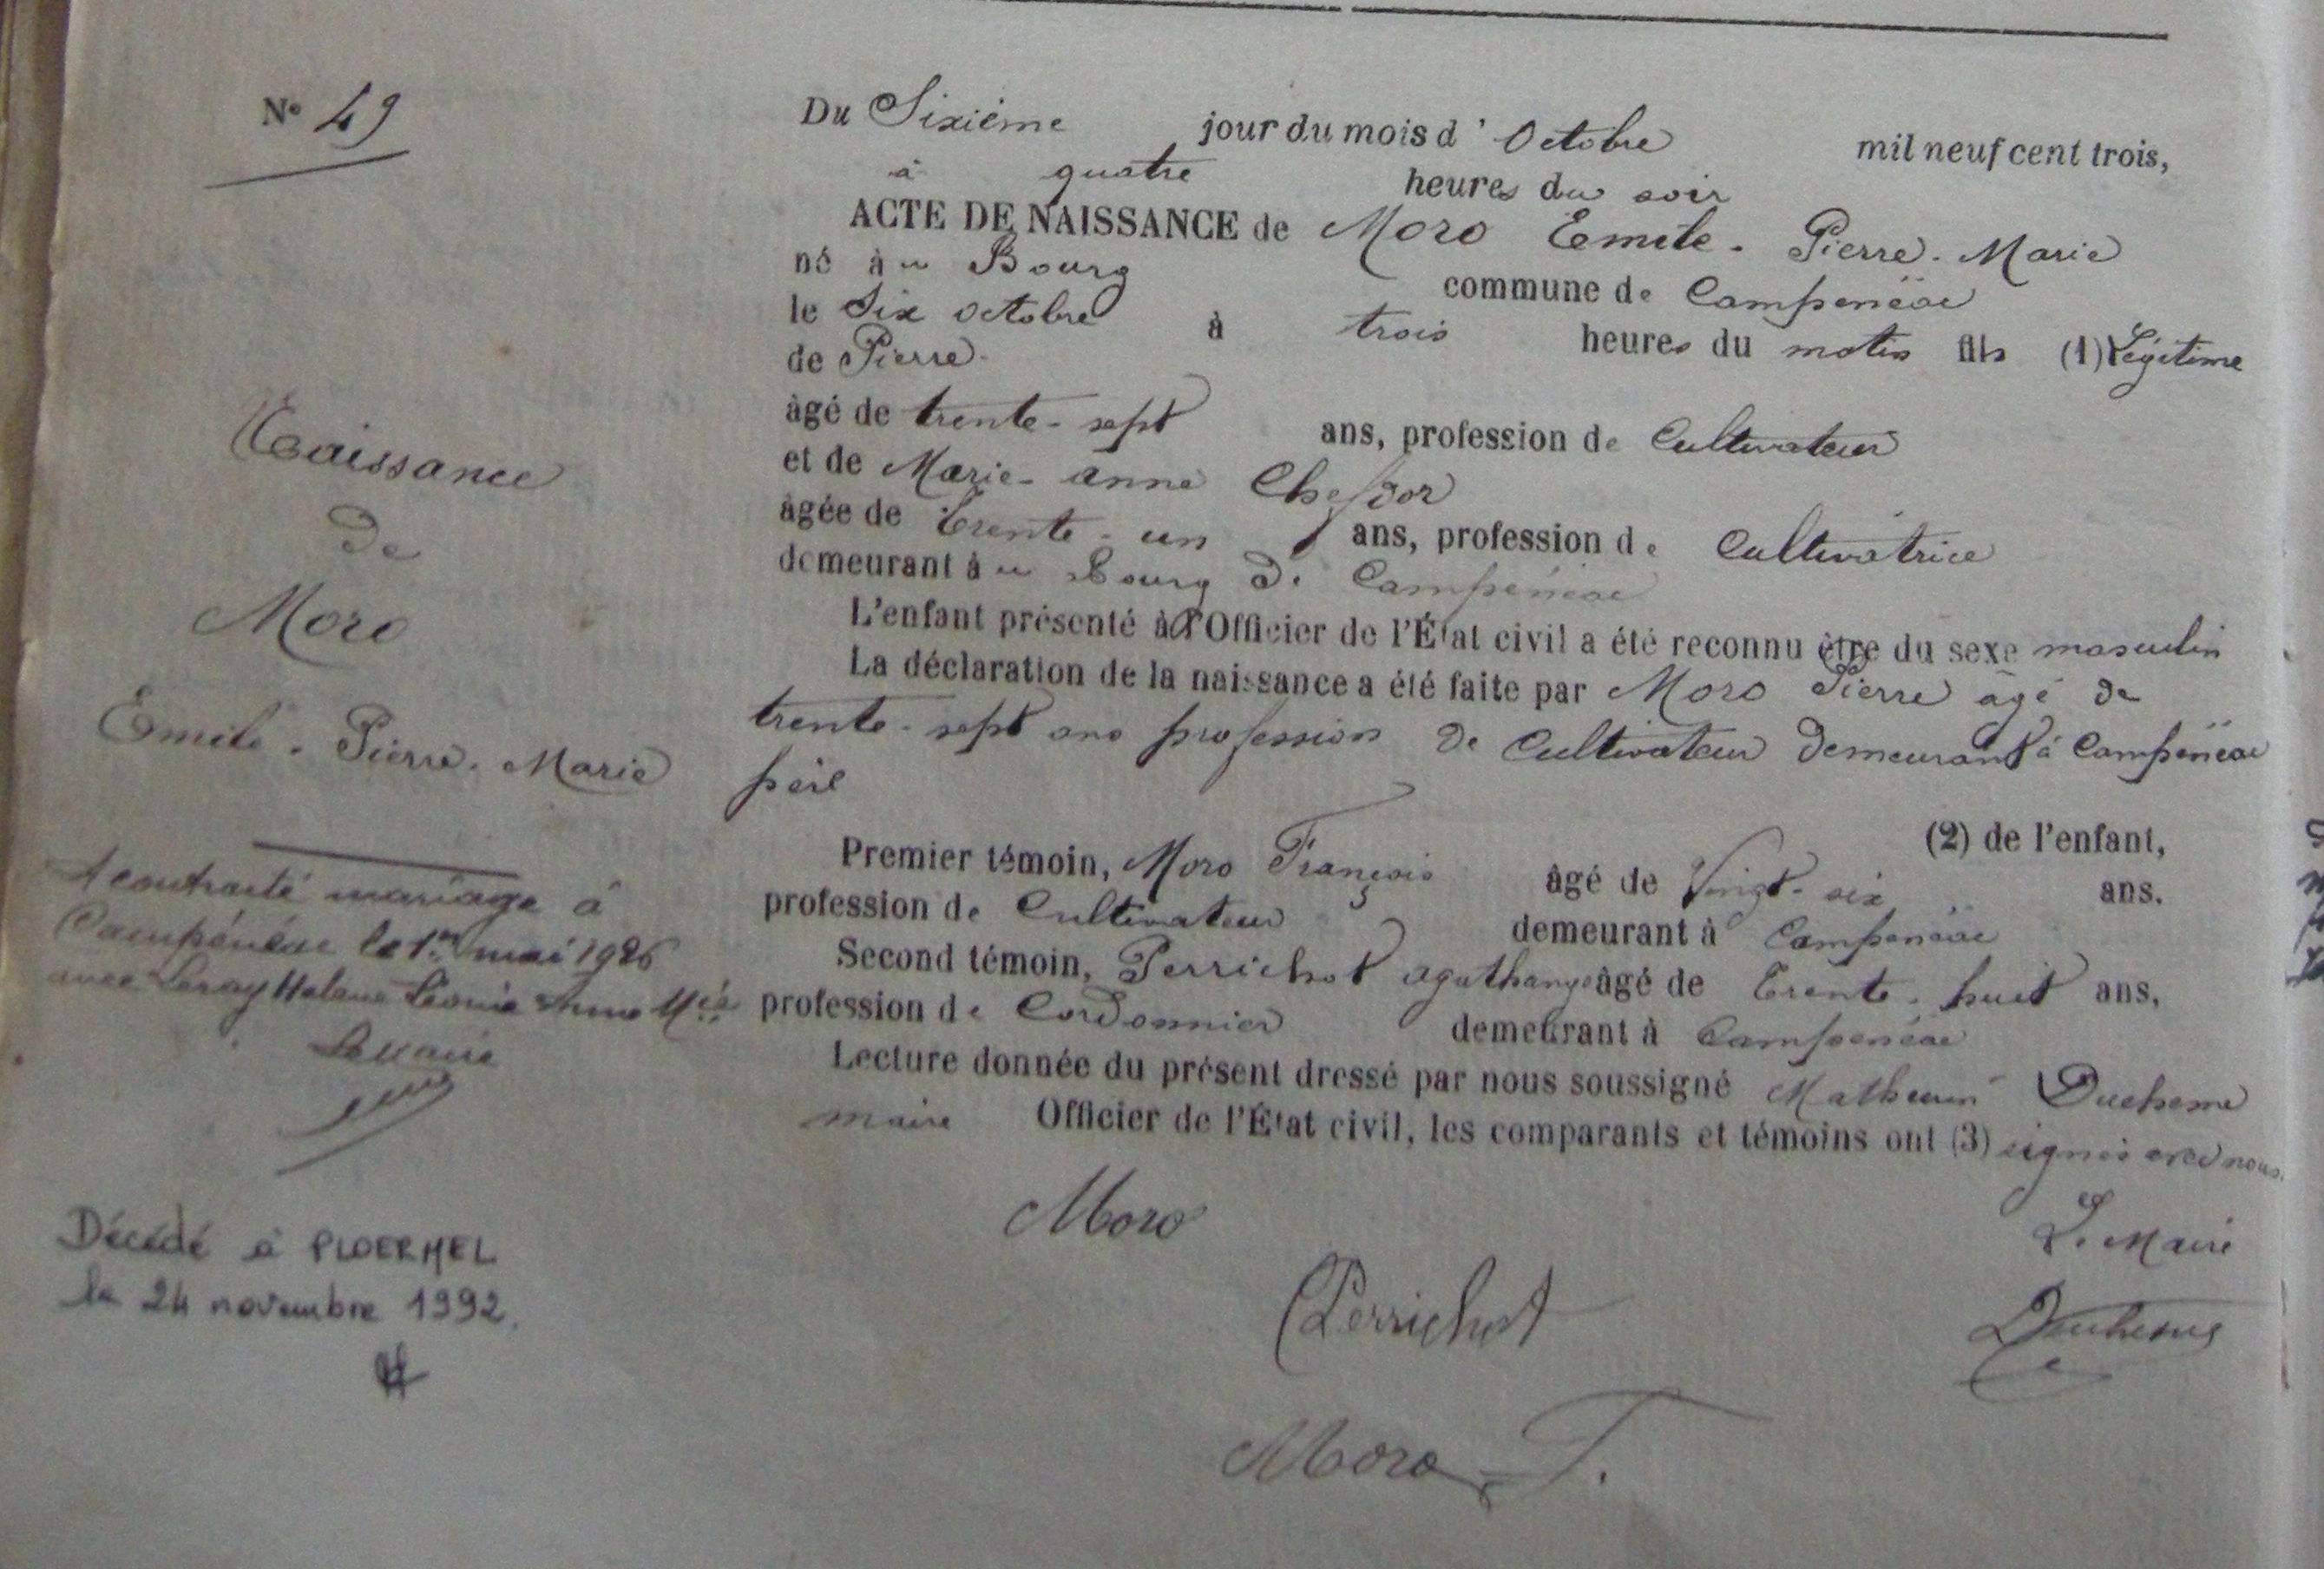 N° 49
Naissance
de
Moro
Emile. Pierre. Marie
A contracté mariage à
Campénéac le 1er mai 1926
avec Leray Helene Léonie Anne Mie
Le Maire
Décédé à PLOERMEL
le 24 novembre 1992.
Du Sixième jour du mois d'Octobre mil neuf cent trois,
à quatre heures du soir
ACTE DE NAISSANCE de Moro Emile. Pierre. Marie
né au Bourg commune de Campénéac
le Six octobre à trois heures du matin fils (1) Légitime
de Pierre
âgé de trente-sept ans, profession de Cultivateur
et de Marie-anne Chefdor
âgée de Trente-un ans, profession de Cultivatrice
demeurant au Bourg de Campénéac
L'enfant présenté à l'Officier de l'État civil a été reconnu être du sexe masculin
La déclaration de la naissance a été faite par Moro Pierre âgé de
trente-sept ans profession de Cultivateur demeurant à Campénéac
père
(2) de l'enfant,
Premier témoin, Moro François âgé de Vingt-six ans.
profession de Cultivateur demeurant à Campénéac
Second témoin, Perrichot agathange âgé de Trente-huit ans,
profession de Cordonnier demeurant à Campénéac
Lecture donnée du présent dressé par nous soussigné Mathurin Duchesne
maire Officier de l'État civil, les comparants et témoins ont (3) signés avec nous.
Moro
Le Maire
Perrichot
Duchesne
Moro F.